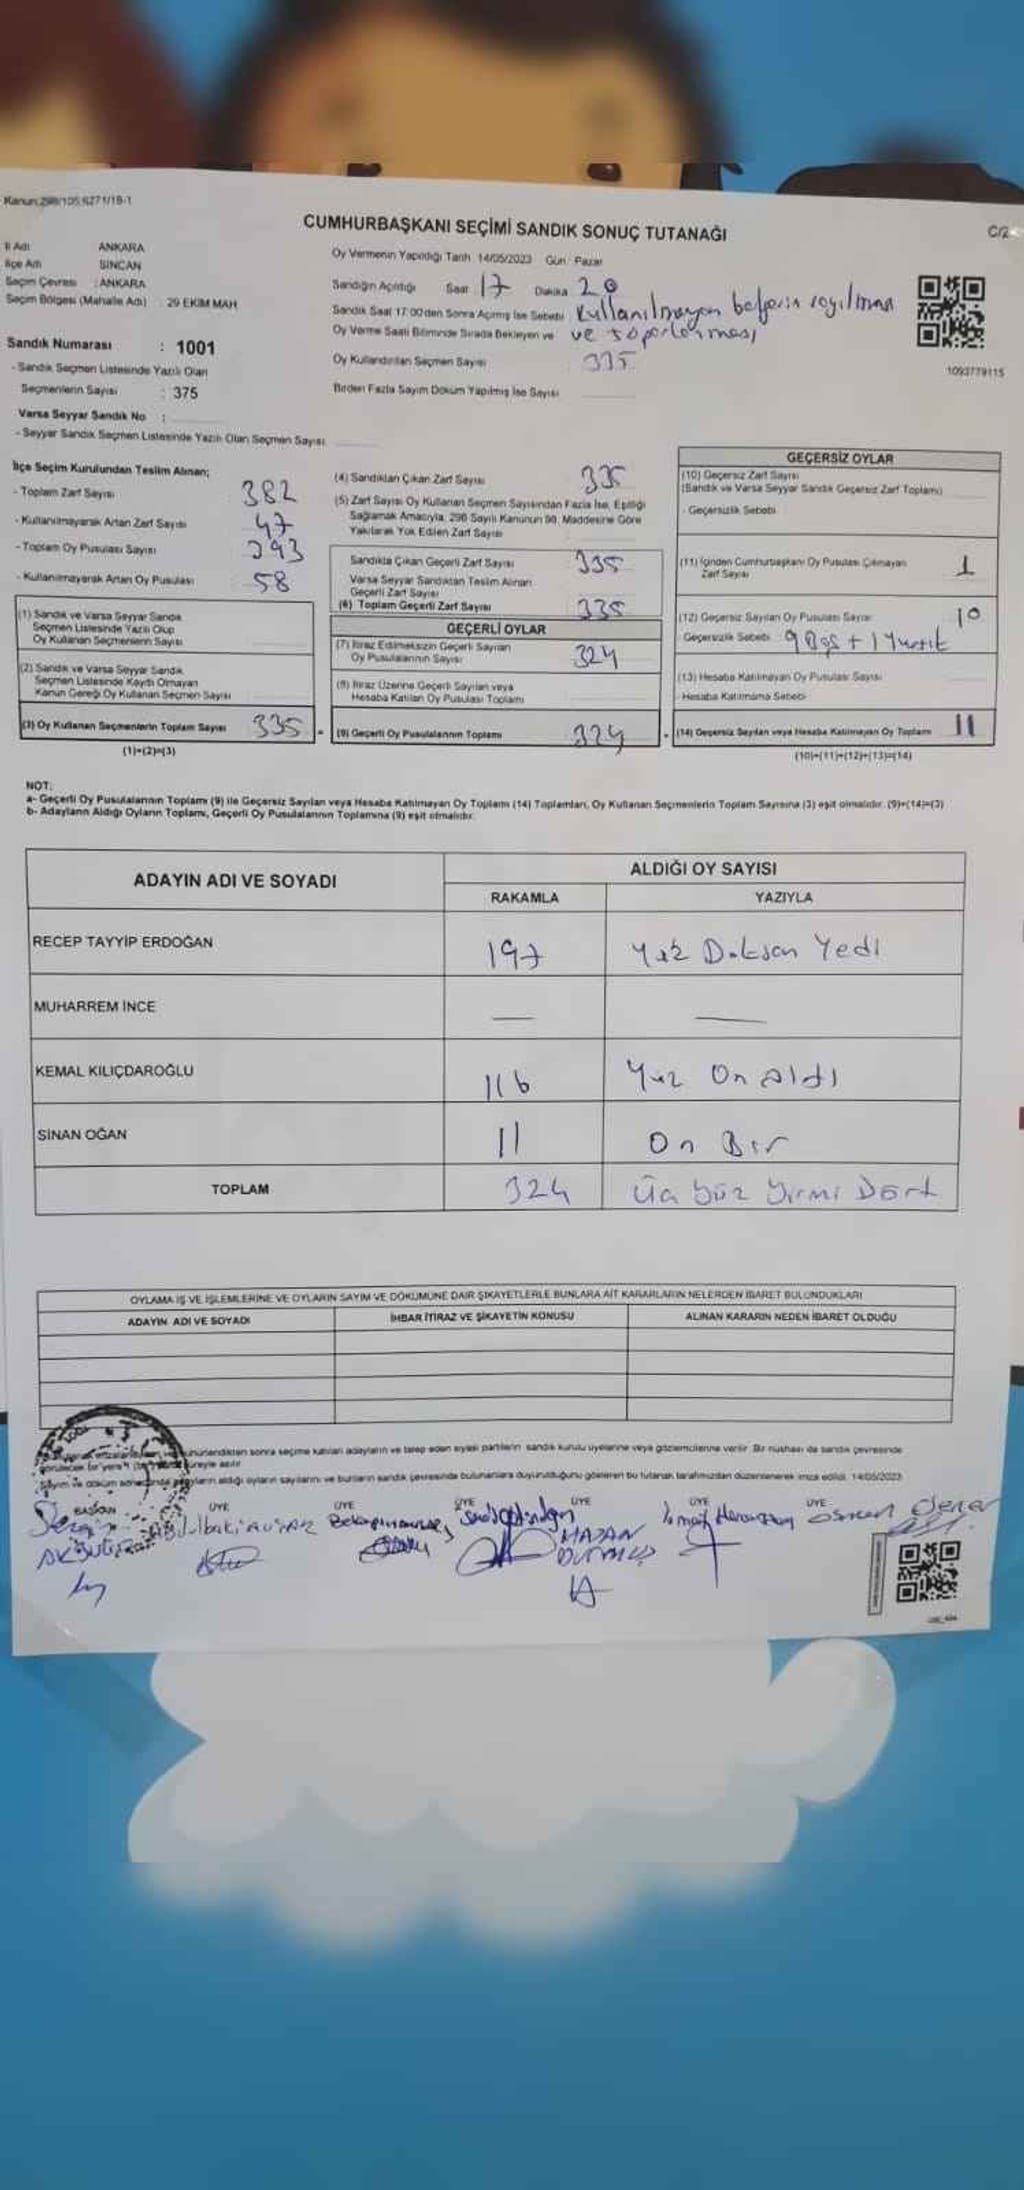 Kanun:298/105,6271/18-1
CUMHURBAŞKANI SEÇİMİ SANDIK SONUÇ TUTANAĞI
C/2
İl Adı ANKARA
İlçe Adı SİNCAN
Seçim Çevresi : ANKARA
Seçim Bölgesi (Mahalle Adı) : 29 EKİM MAH
Sandık Numarası : 1001
- Sandık Seçmen Listesinde Yazılı Olan
Seçmenlerin Sayısı : 375
Varsa Seyyar Sandık No :
- Seyyar Sandık Seçmen Listesinde Yazılı Olan Seçmen Sayısı
Oy Vermenin Yapıldığı Tarih 14/05/2023 Gün : Pazar
Sandığın Açıldığı Saat 17 Dakika 20
Sandık Saat 17:00'den Sonra Açılmış İse Sebebi Kullanılmayan sayılması
Oy Verme Saati Bitiminde Sırada Bekleyen ve ve
Oy Kullandırılan Seçmen Sayısı 335
Birden Fazla Sayım Döküm Yapılmış İse Sayısı
1093779115
İlçe Seçim Kurulundan Teslim Alınan;
- Toplam Zarf Sayısı 382
- Kullanılmayarak Artan Zarf Sayısı 47
- Toplam Oy Pusulası Sayısı 393
- Kullanılmayarak Artan Oy Pusulası 58
(1) Sandık ve Varsa Seyyar Sandık
Seçmen Listesinde Yazılı Olup
Oy Kullanan Seçmenlerin Sayısı
(2) Sandık ve Varsa Seyyar Sandık
Seçmen Listesinde Kaydı Olmayan
Kanun Gereği Oy Kullanan Seçmen Sayısı
(3) Oy Kullanan Seçmenlerin Toplam Sayısı 335
(1)+(2)=(3)
(4) Sandıktan Çıkan Zarf Sayısı 335
(5) Zarf Sayısı Oy Kullanan Seçmen Sayısından Fazla İse, Eşitliği
Sağlamak Amacıyla, 298 Sayılı Kanunun 98. Maddesine Göre
Yakılarak Yok Edilen Zarf Sayısı
Sandıkta Çıkan Geçerli Zarf Sayısı 335
Varsa Seyyar Sandıktan Teslim Alınan
Geçerli Zarf Sayısı
(6) Toplam Geçerli Zarf Sayısı 335
GEÇERLİ OYLAR
(7) İtiraz Edilmeksizin Geçerli Sayılan
Oy Pusulalarının Sayısı 324
(8) İtiraz Üzerine Geçerli Sayılan veya
Hesaba Katılan Oy Pusulası Toplamı
(9) Geçerli Oy Pusulalarının Toplamı 324
GEÇERSİZ OYLAR
(10) Geçersiz Zarf Sayısı
(Sandık ve Varsa Seyyar Sandık Geçersiz Zarf Toplamı)
- Geçersizlik Sebebi
(11) İçinden Cumhurbaşkanı Oy Pusulası Çıkmayan
Zarf Sayısı 1
(12) Geçersiz Sayılan Oy Pusulası Sayısı 10
- Geçersizlik Sebebi 9 Boş + 1 Yırtık
(13) Hesaba Katılmayan Oy Pusulası Sayısı
- Hesaba Katılmama Sebebi
(14) Geçersiz Sayılan veya Hesaba Katılmayan Oy Toplamı 11
(10)+(11)+(12)+(13)=(14)
NOT:
a- Geçerli Oy Pusulalarının Toplamı (9) ile Geçersiz Sayılan veya Hesaba Katılmayan Oy Toplamı (14) Toplamları, Oy Kullanan Seçmenlerin Toplam Sayısına (3) eşit olmalıdır. (9)+(14)=(3)
b- Adayların Aldığı Oyların Toplamı, Geçerli Oy Pusulalarının Toplamına (9) eşit olmalıdır.
ADAYIN ADI VE SOYADI ALDIĞI OY SAYISI
RAKAMLA YAZIYLA
RECEP TAYYİP ERDOĞAN 197 Yüz Doksan Yedi
MUHARREM İNCE — —
KEMAL KILIÇDAROĞLU 116 Yüz On altı
SİNAN OĞAN 11 On Bir
TOPLAM 324 Üç yüz Yirmi Dört
OYLAMA İŞ VE İŞLEMLERİNE VE OYLARIN SAYIM VE DÖKÜMÜNE DAİR ŞİKAYETLERLE BUNLARA AİT KARARLARIN NELERDEN İBARET BULUNDUKLARI
ADAYIN ADI VE SOYADI İHBAR İTİRAZ VE ŞİKAYETİN KONUSU ALINAN KARARIN NEDEN İBARET OLDUĞU
sonra seçime katılan adayların ve talep eden siyasi partilerin sandık kurulu üyelerine veya gözlemcilerine verilir. Bir nüshası da sandık çevresinde
aldığı oyların sayılarını ve bunların sandık çevresinde bulunanlara duyurulduğunu gösteren bu tutanak tarafımızdan düzenlenerek imza edildi. 14/05/2023
BAŞKAN ÜYE ÜYE ÜYE ÜYE ÜYE ÜYE
HASAN
DURMUŞ